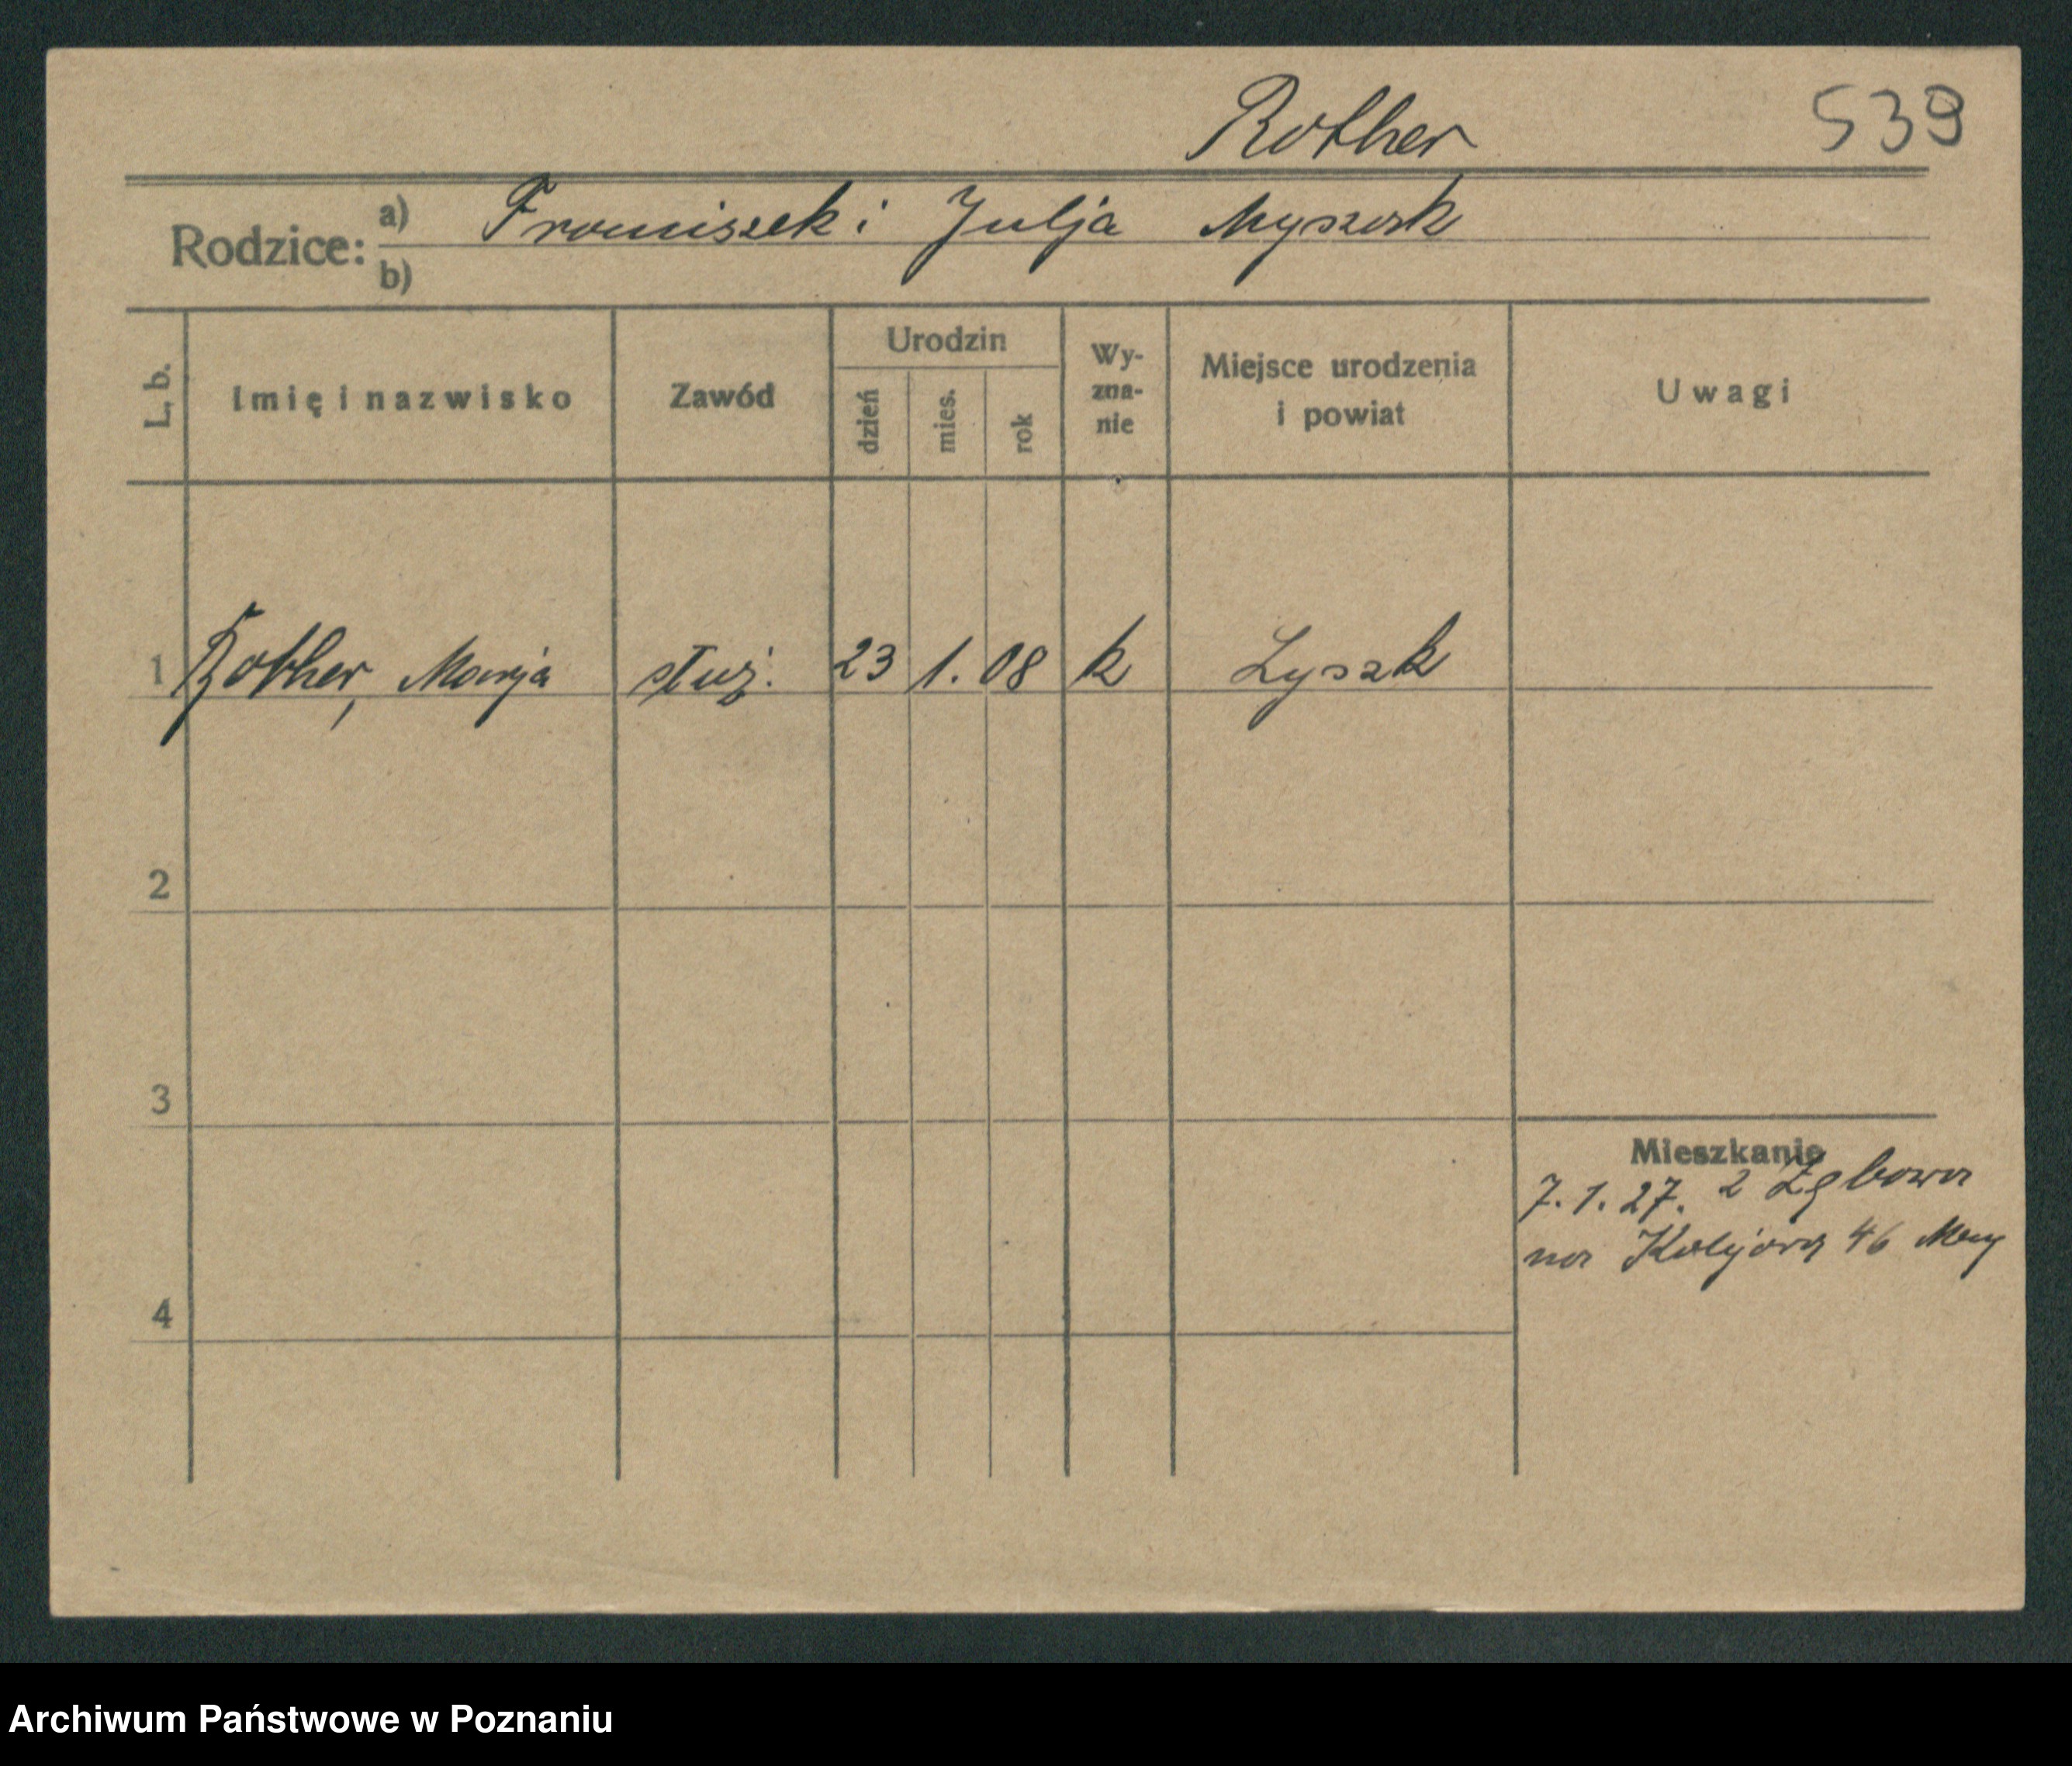 Rother 539
Rodzice: a) Franciszek i Julja Myszork
b)
L, b. Imię i nazwisko Zawód Urodzin dzień mies. rok Wy-zna-nie Miejsce urodzenia i powiat Uwagi
1 Rother, Marja służ. 23 1. 08 k Lyszk
2
3
Mieszkanie
7. 1. 27. z Zębowa
na 46
4
Archiwum Państwowe w Poznaniu